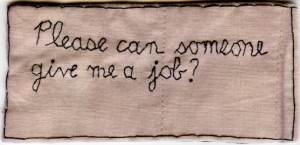 Please can someone
give me a job?